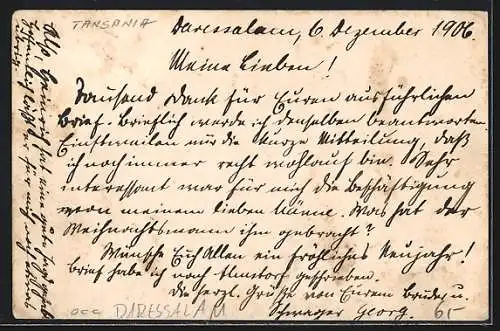 TANSANIA
Daressalam, 6 Dezember 1906.
Meine Lieben!
Tausend Dank für Euren ausführlichen
Brief. Brieflich werde ich denselben beantworten.
Einstweilen nur die kurze Mitteilung, daß
ich noch immer recht wohlauf bin. Sehr
interessant war für mich die Beschäftigung
von meinem lieben Männe. Was hat der
Weihnachtsmann ihm gebracht?
Wünsche Euch Allen ein fröhliches Neujahr!
Brief habe ich nach Ilmstorf geschrieben.
Die herzl. Grüße von Eurem Bruder u.
Schwager Georg.
DARESSALAM
65
hat eine gute
für mich